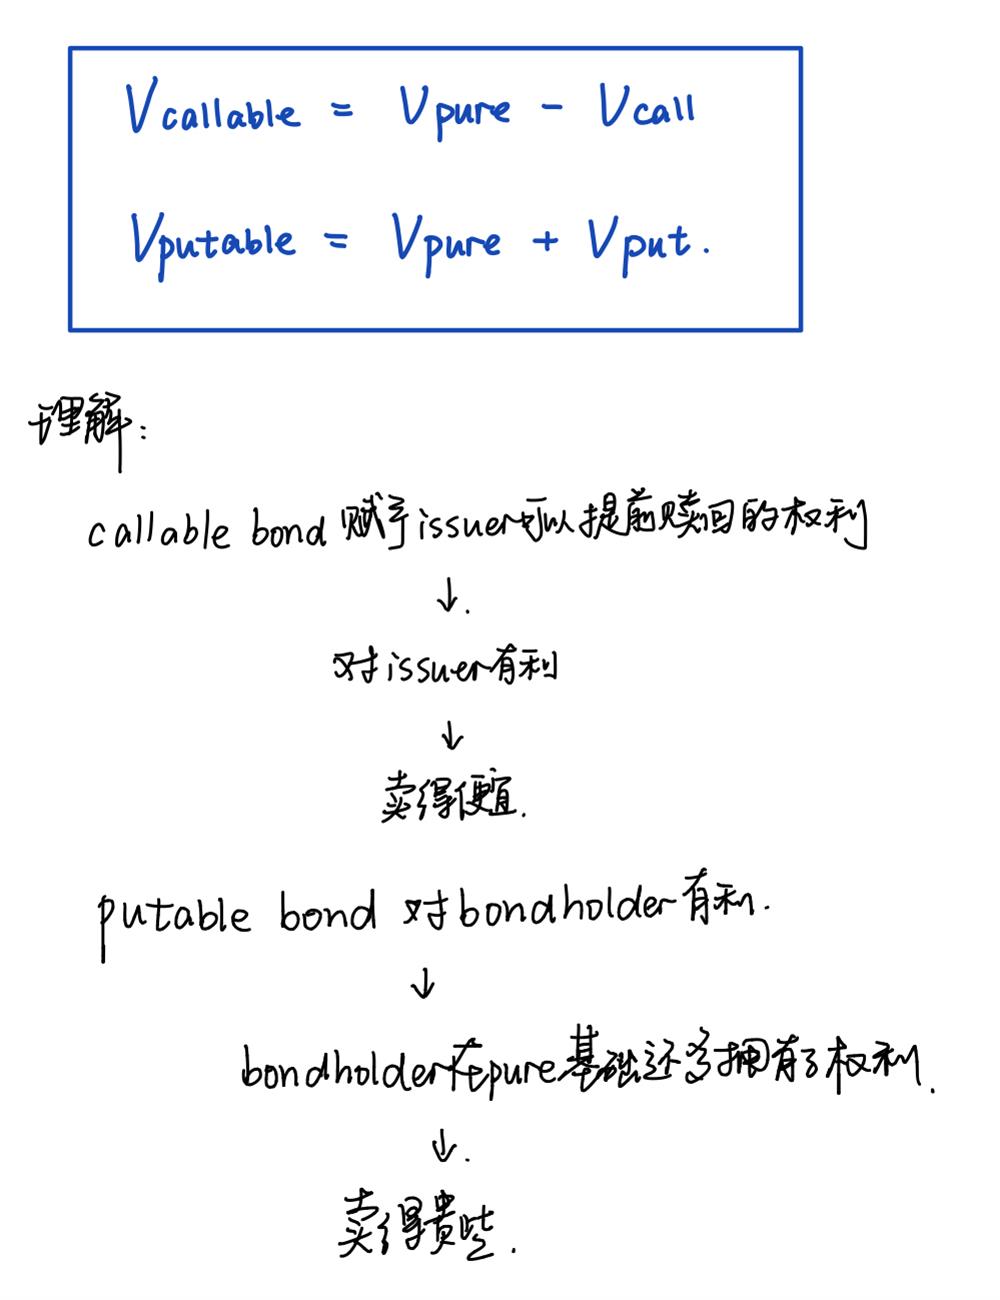 Vcallable = Vpure - Vcall
Vputable = Vpure + Vput.
理解:
callable bond 赋予issuer可以提前赎回的权利
↓.
对issuer有利
↓
卖得便宜.
putable bond 对bondholder有利.
↓
bondholder在pure基础还多拥有了权利.
↓.
卖得贵些.